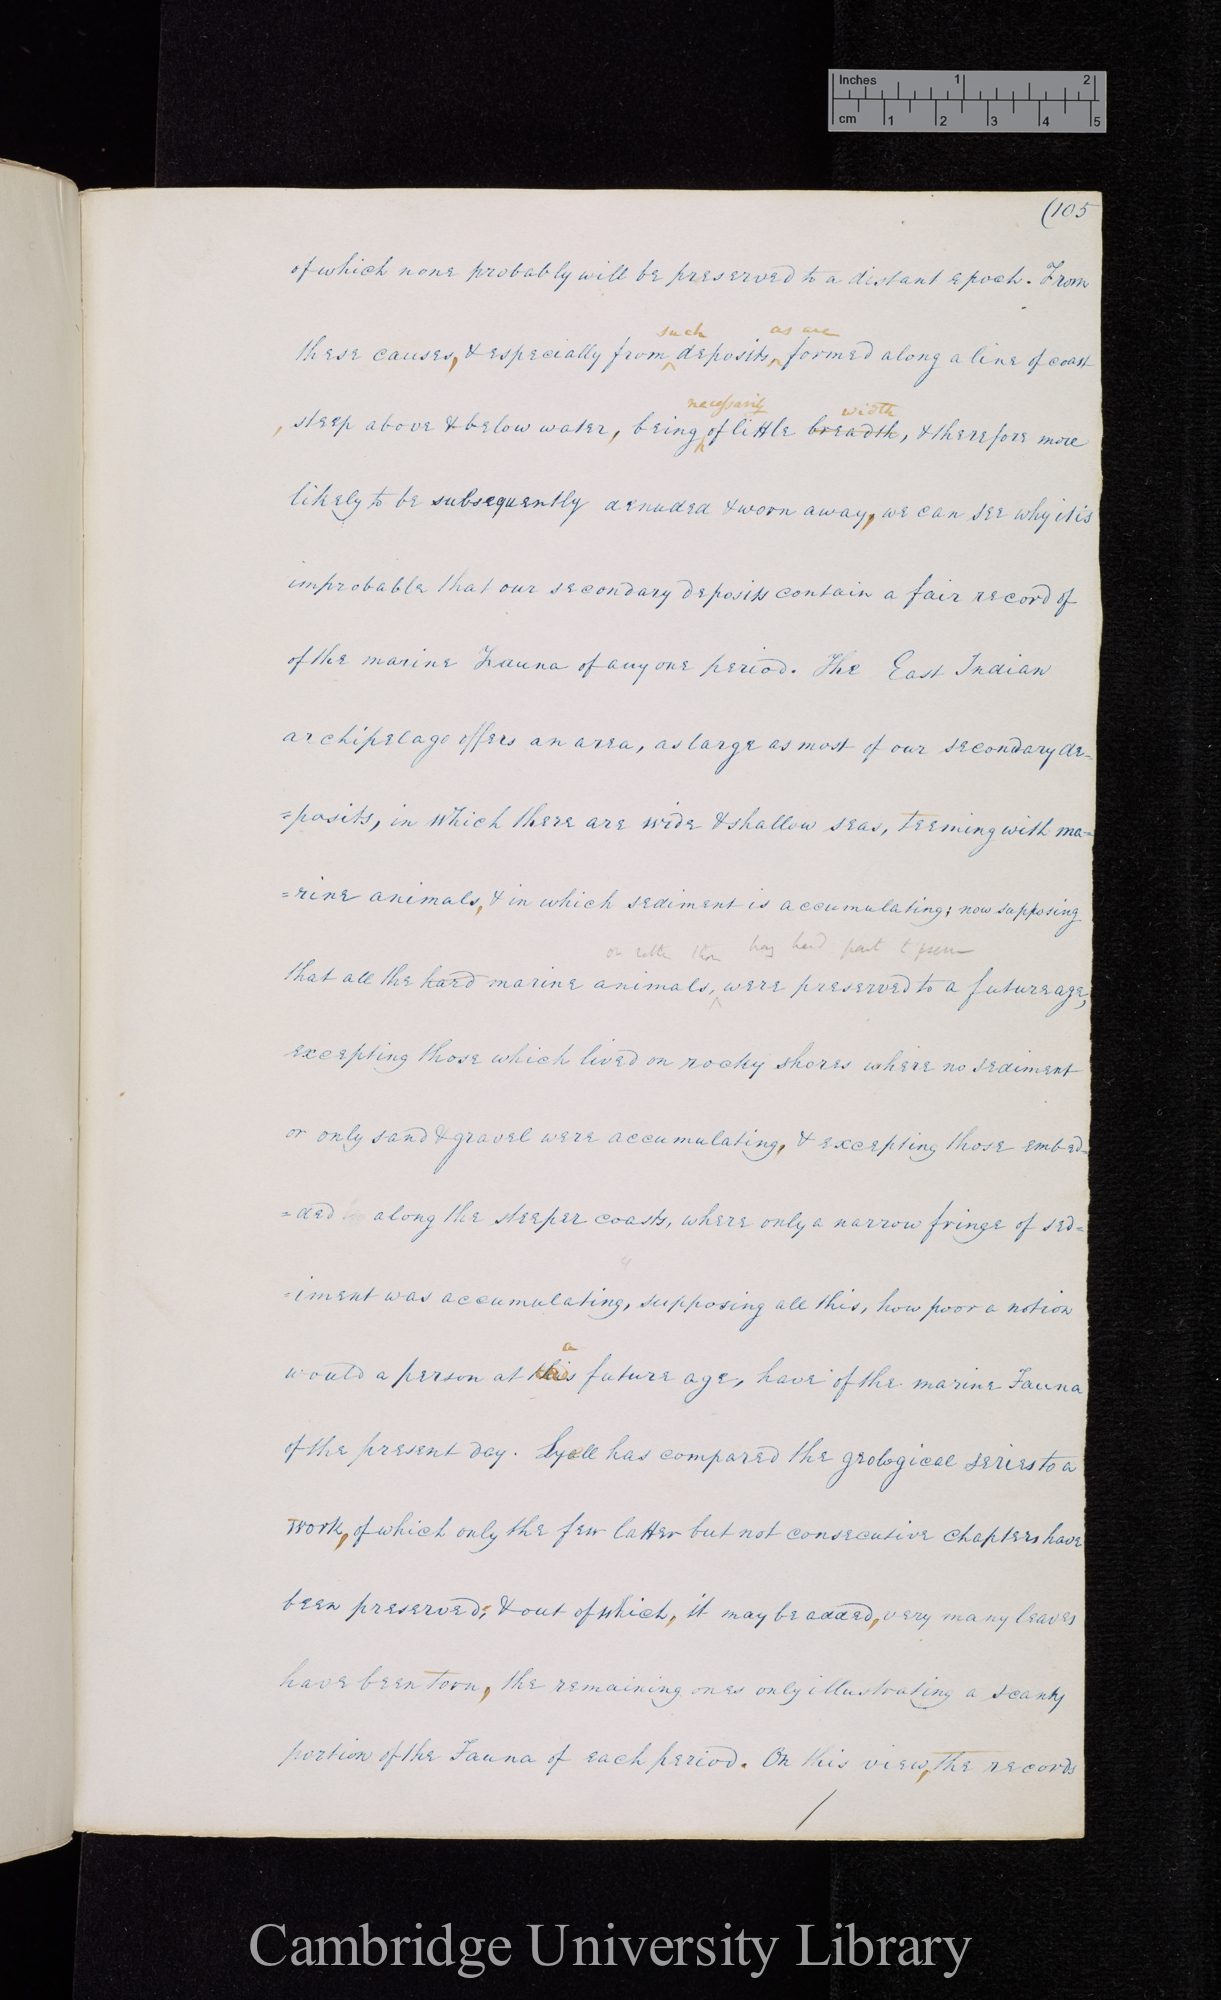 Inches 1 2
cm 1 2 3 4 5
(105
of which none probably will be preserved to a distant epoch. From
such as are
these causes, & especially from deposits, formed along a line of coast
necessarily width
, steep above & below water, being of little breadth, & therefore more
likely to be subsequently denuded & worn away, we can see why it is
improbable that our secondary deposits contain a fair record of
of the marine Fauna of any one period. The East Indian
archipelago offers an area, as large as most of our secondary de-
=posits, in which there are wide & shallow seas, teeming with ma=
=rine animals, & in which sediment is accumulating; now supposing
or rather those having hard part to preserve
that all the hard marine animals, were preserved to a future age,
excepting those which lived on rocky shores where no sediment
or only sand & gravel were accumulating, & excepting those embed=
=ded along the steeper coasts, where only a narrow fringe of sed=
=iment was accumulating, supposing all this, how poor a notion
a
would a person at this future age, have of the marine Fauna
of the present day. Lyell has compared the geological series to a
work, of which only the few latter but not consecutive chapters have
been preserved; & out of which, it may be added, very many leaves
have been torn, the remaining ones only illustrating a scanty
portion of the Fauna of each period. On this view, the records
Cambridge University Library